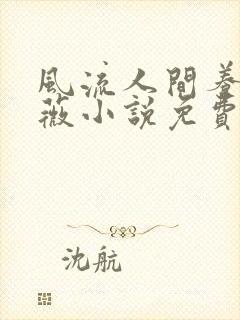 風流人間養
薇小說免費
沈航